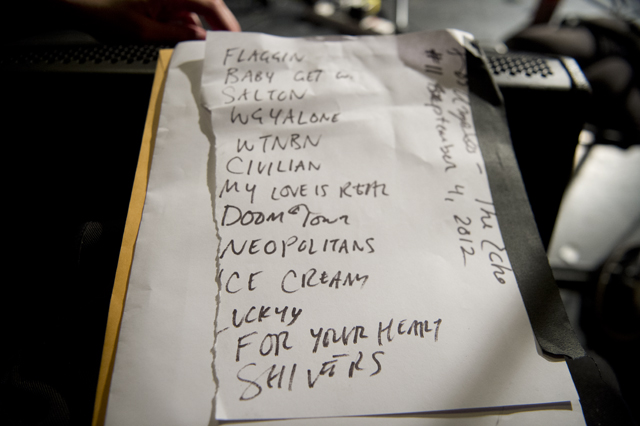 FLAGGIN
BABY GET
SALTON
WGYALONE
WTNBN
CIVILIAN
MY LOVE IS REAL
DOOM TOWN
NEOPOLITANS
ICE CREAM
LUCKY4
FOR YOUR HEART
SHIVERS
- The Echo
# 11 September 4, 2012